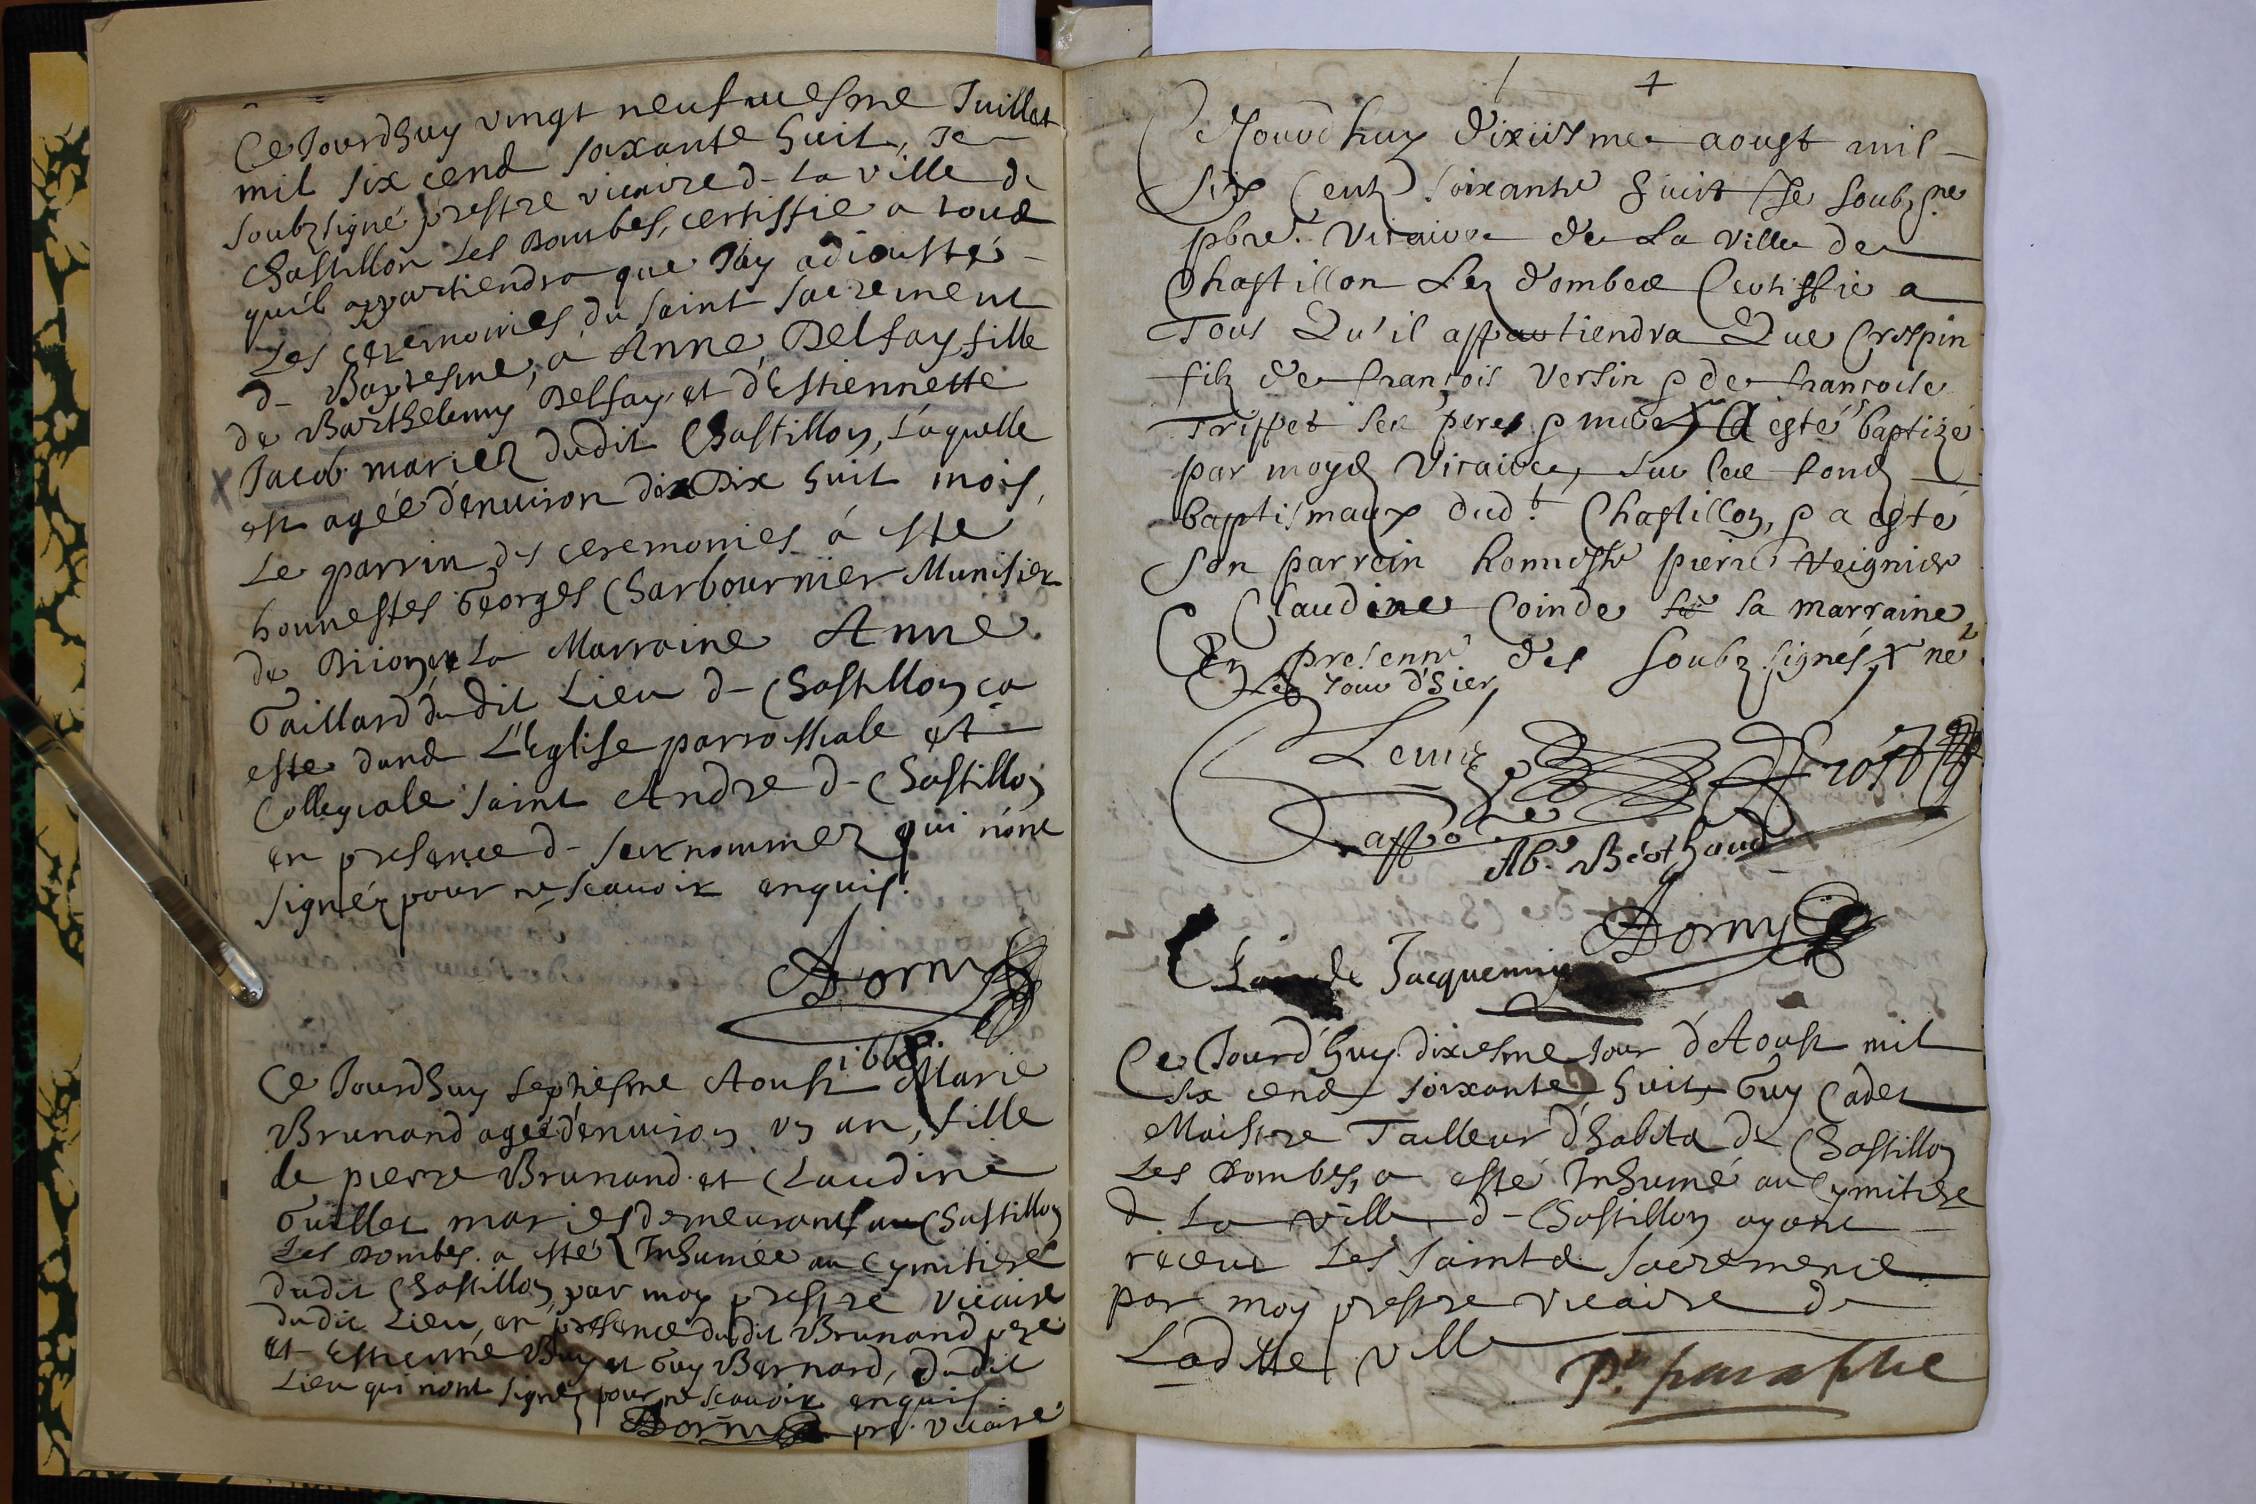 Ce Jourdhuy vingt neufuiesme Juillet
mil six cend soixante huit, Je
soubzsigné prestre vicaire d- La ville de
Chastillon Les Dombes, certiffie a toud
quil appartiendra que Jáy adiousté
Les ceremonies du saint sacrement
d- Baptesme, á Anne Delfay fille
de Barthelemy Delfay et d'Estiennette
Jacob mariez dudit Chastillon, Laquelle
est agée d'enuiron dix huit mois,
Le parrin des ceremonies á esté
honnestes Georges Charbournier Munisier
de la Marraine Anne
Gaillard dudit Lieu d- Chastillon ca
esté dand L'Eglise parrossiale et
Collegiale saint Andre d- Chastillon
en presence d- surnommez qui n'ont
signéz pour ne scauoir enquis.
Dorny
1668
Ce Jourdhuy septiesme Aoust Marie
Brunand agée d'enuiron vn an, fille
de pierre Brunand et Claudine
Guillet mariés demeurant Chastillon
Les Dombes a esté Inhumée au Cymitiere
dudit Chastillon par moy prestre vicaire
dudit Lieu, en presence dudit Brunand pere
et Estienne Buy et Guy Bernard, dudit
Lieu qui n'ont signez pour ne scauoir enquis.
Dorny pre. vicaire
+
Ce Jourdhuy dixiesme aoust mil
six Centz soixante huit Je soubzsne
pbre. Vicaire de La Ville de
Chastillon Lez dombes Certiffie a
Tous Qu'il appartiendra Que Crespin
filz de françois Versin & de françoise
Trippet ses peres & mere A esté baptizé
par moyd Vicaire, sur les fondz
baptismaux dud.t Chastillon, & a esté
Son parrain honneste pierre Veignier
Claudine Coinde sa marraine,
En presence des soubzsignés, ne
Le Jour d'hier,
Ab. Berthaud
Dorny
Claude Jacquemin
Ce Jourd'huy dixiesme Jour d'Aoust mil
six cend soixante huit Guy Cadet
Maistre Tailleur d'habitd de Chastillon
Les Dombes, a esté Inhumé au Cymitiere
d La ville d- Chastillon ayant
receut Les saintd sacrement
par moy prestre vicaire de
Laditte ville
pn. paraphe